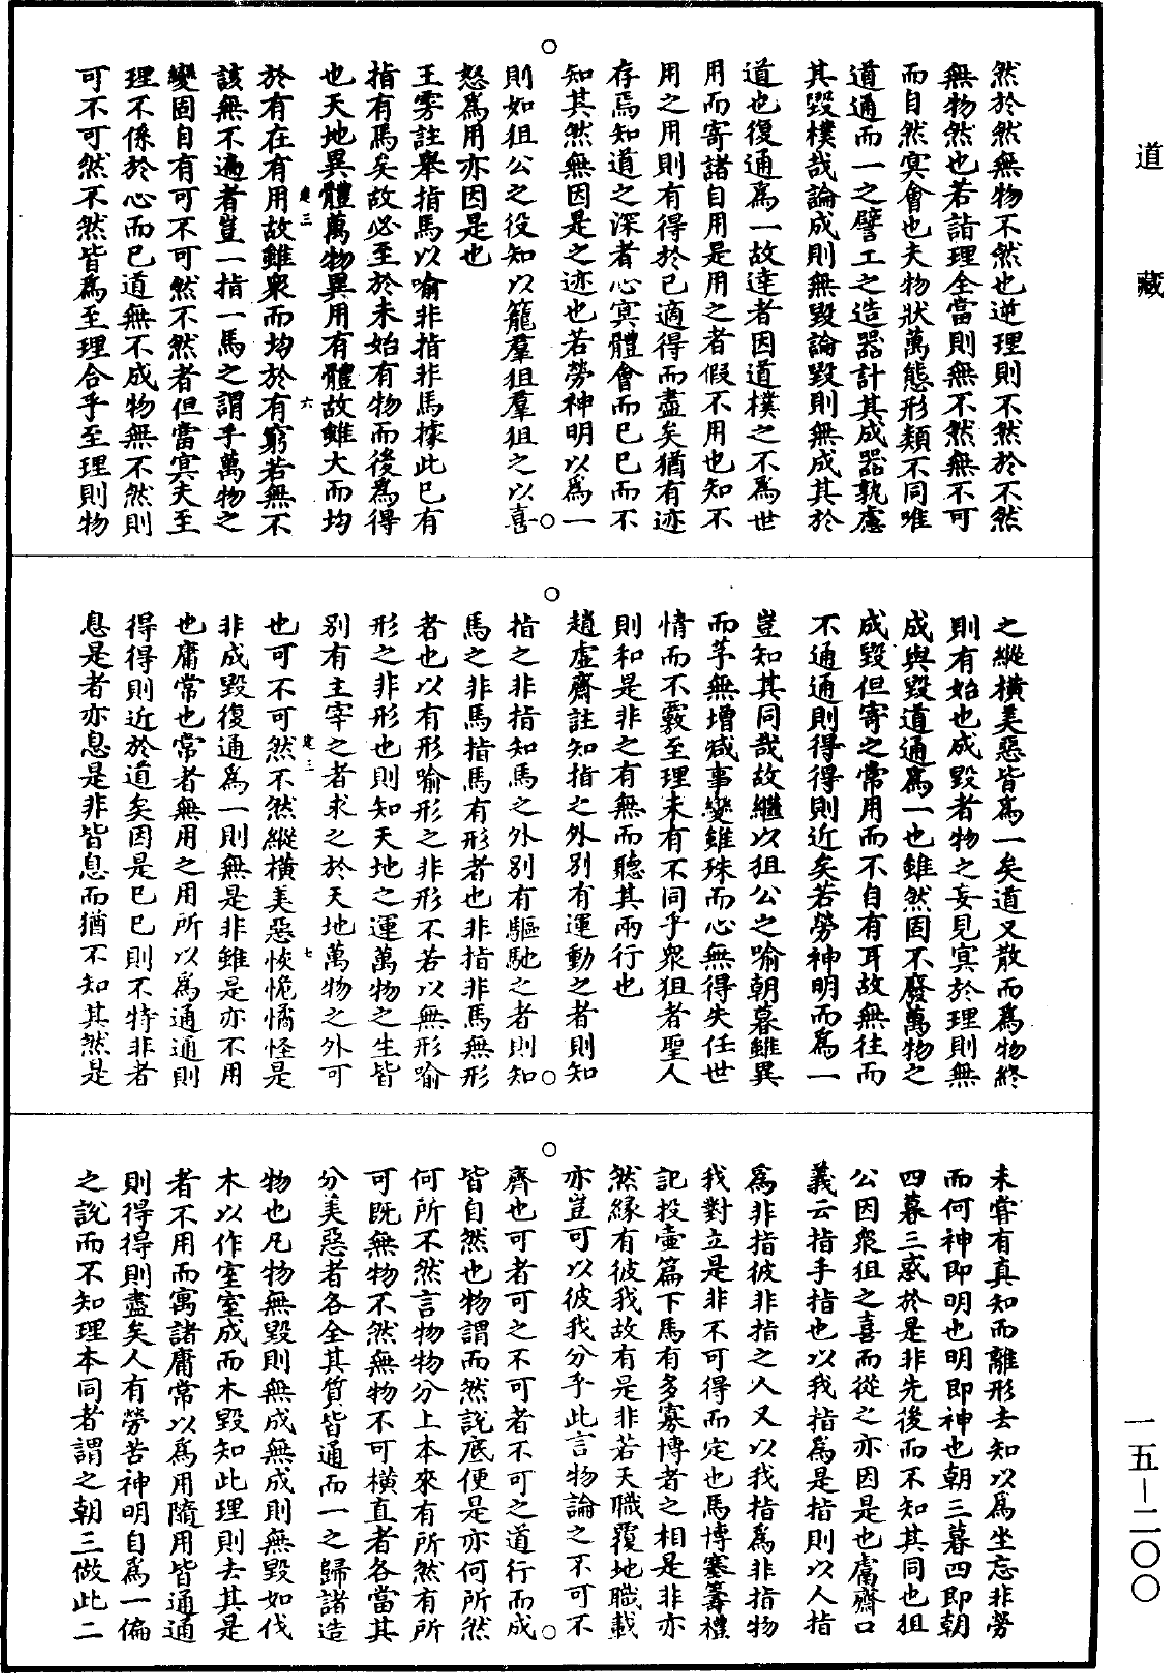 道藏
然於然無物不然也逆理則不然於不然
無物然也若詣理全當則無不然無不可
而自然冥會也夫物狀萬態形類不同唯
道通而一之譬工之造器計其成器孰慮
其毀樸哉論成則無毀論毀則無成其於
道也復通爲一故達者因道樸之不爲世
用而寄諸自用是用之者假不用也知不
用之用則有得於已適得而盡矣猶有迹
存焉知道之深者心冥體會而已已而不
知其然無因是之迹也若勞神明以爲一
則如狙公之役知以籠羣狙羣狙之以喜
怒爲用亦因是也
王雱註舉指馬以喻非指非馬據此已有
指有馬矣故必至於未始有物而後爲得
也天地異體萬物異用有體故雖大而均
建三 六
於有在有用故雖衆而均於有窮若無不
該無不遍者豈一指一馬之謂乎萬物之
變固自有可不可然不然者但當冥夫至
理不係於心而已道無不成物無不然則
可不可然不然皆爲至理合乎至理則物
之縱橫美惡皆爲一矣道又散而爲物終
則有始也成毀者物之妄見冥於理則無
成與毀道通爲一也雖然固不廢萬物之
成毀但寄之常用而不自有耳故無往而
不通通則得得則近矣若勞神明而爲一
豈知其同哉故繼以狙公之喻朝暮雖異
而芧無增減事變雖殊而心無得失任世
情而不覈至理未有不同乎衆狙者聖人
則和是非之有無而聽其兩行也
趙虛齋註知指之外別有運動之者則知
指之非指知馬之外別有驅馳之者則知
馬之非馬指馬有形者也非指非馬無形
者也以有形喻形之非形不若以無形喻
形之非形也則知天地之運萬物之生皆
別有主宰之者求之於天地萬物之外可
建三 七
也可不可然不然縱橫美惡恢恑憰怪是
非成毀復通爲一則無是非雖是亦不用
也庸常也常者無用之用所以爲通通則
得得則近於道矣因是已已則不特非者
息是者亦息是非皆息而猶不知其然是
未嘗有真知而離形去知以爲坐忘非勞
而何神即明也明即神也朝三暮四即朝
四暮三惑於是非先後而不知其同也狙
公因衆狙之喜而從之亦因是也鬳齋口
義云指手指也以我指爲是指則以人指
爲非指彼非指之人又以我指爲非指物
我對立是非不可得而定也馬博塞籌禮
記投壷篇下馬有多寡博者之相是非亦
然緣有彼我故有是非若天職覆地職載
亦豈可以彼我分乎此言物論之不可不
齊也可者可之不可者不可之道行而成
皆自然也物謂而然說底便是亦何所然
何所不然言物物分上本來有所然有所
可既無物不然無物不可橫直者各當其
分美惡者各全其質皆通而一之歸諸造
物也凡物無毀則無成無成則無毀如伐
木以作室室成而木毀知此理則去其是
者不用而寓諸庸常以爲用隨用皆通通
則得得則盡矣人有勞苦神明自爲一偏
之說而不知理本同者謂之朝三做此二
一五—二〇〇